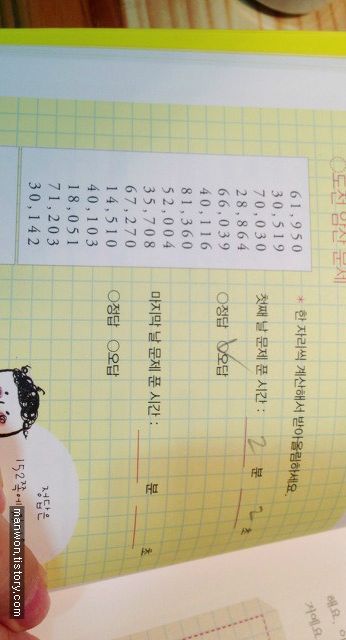 도전 암산 문제
61,950
30,519
70,030
28,864
66,039
40,116
81,360
52,004
35,708
67,270
14,510
40,103
18,051
71,203
30,142
* 한 자리씩 계산해서 받아올림하세요.
첫째 날 문제 푼 시간 : 2 분 2 초
○정답 ○오답
마지막 날 문제 푼 시간 : 분 초
○정답 ○오답
정답은
152쪽에
manwon.tistory.com